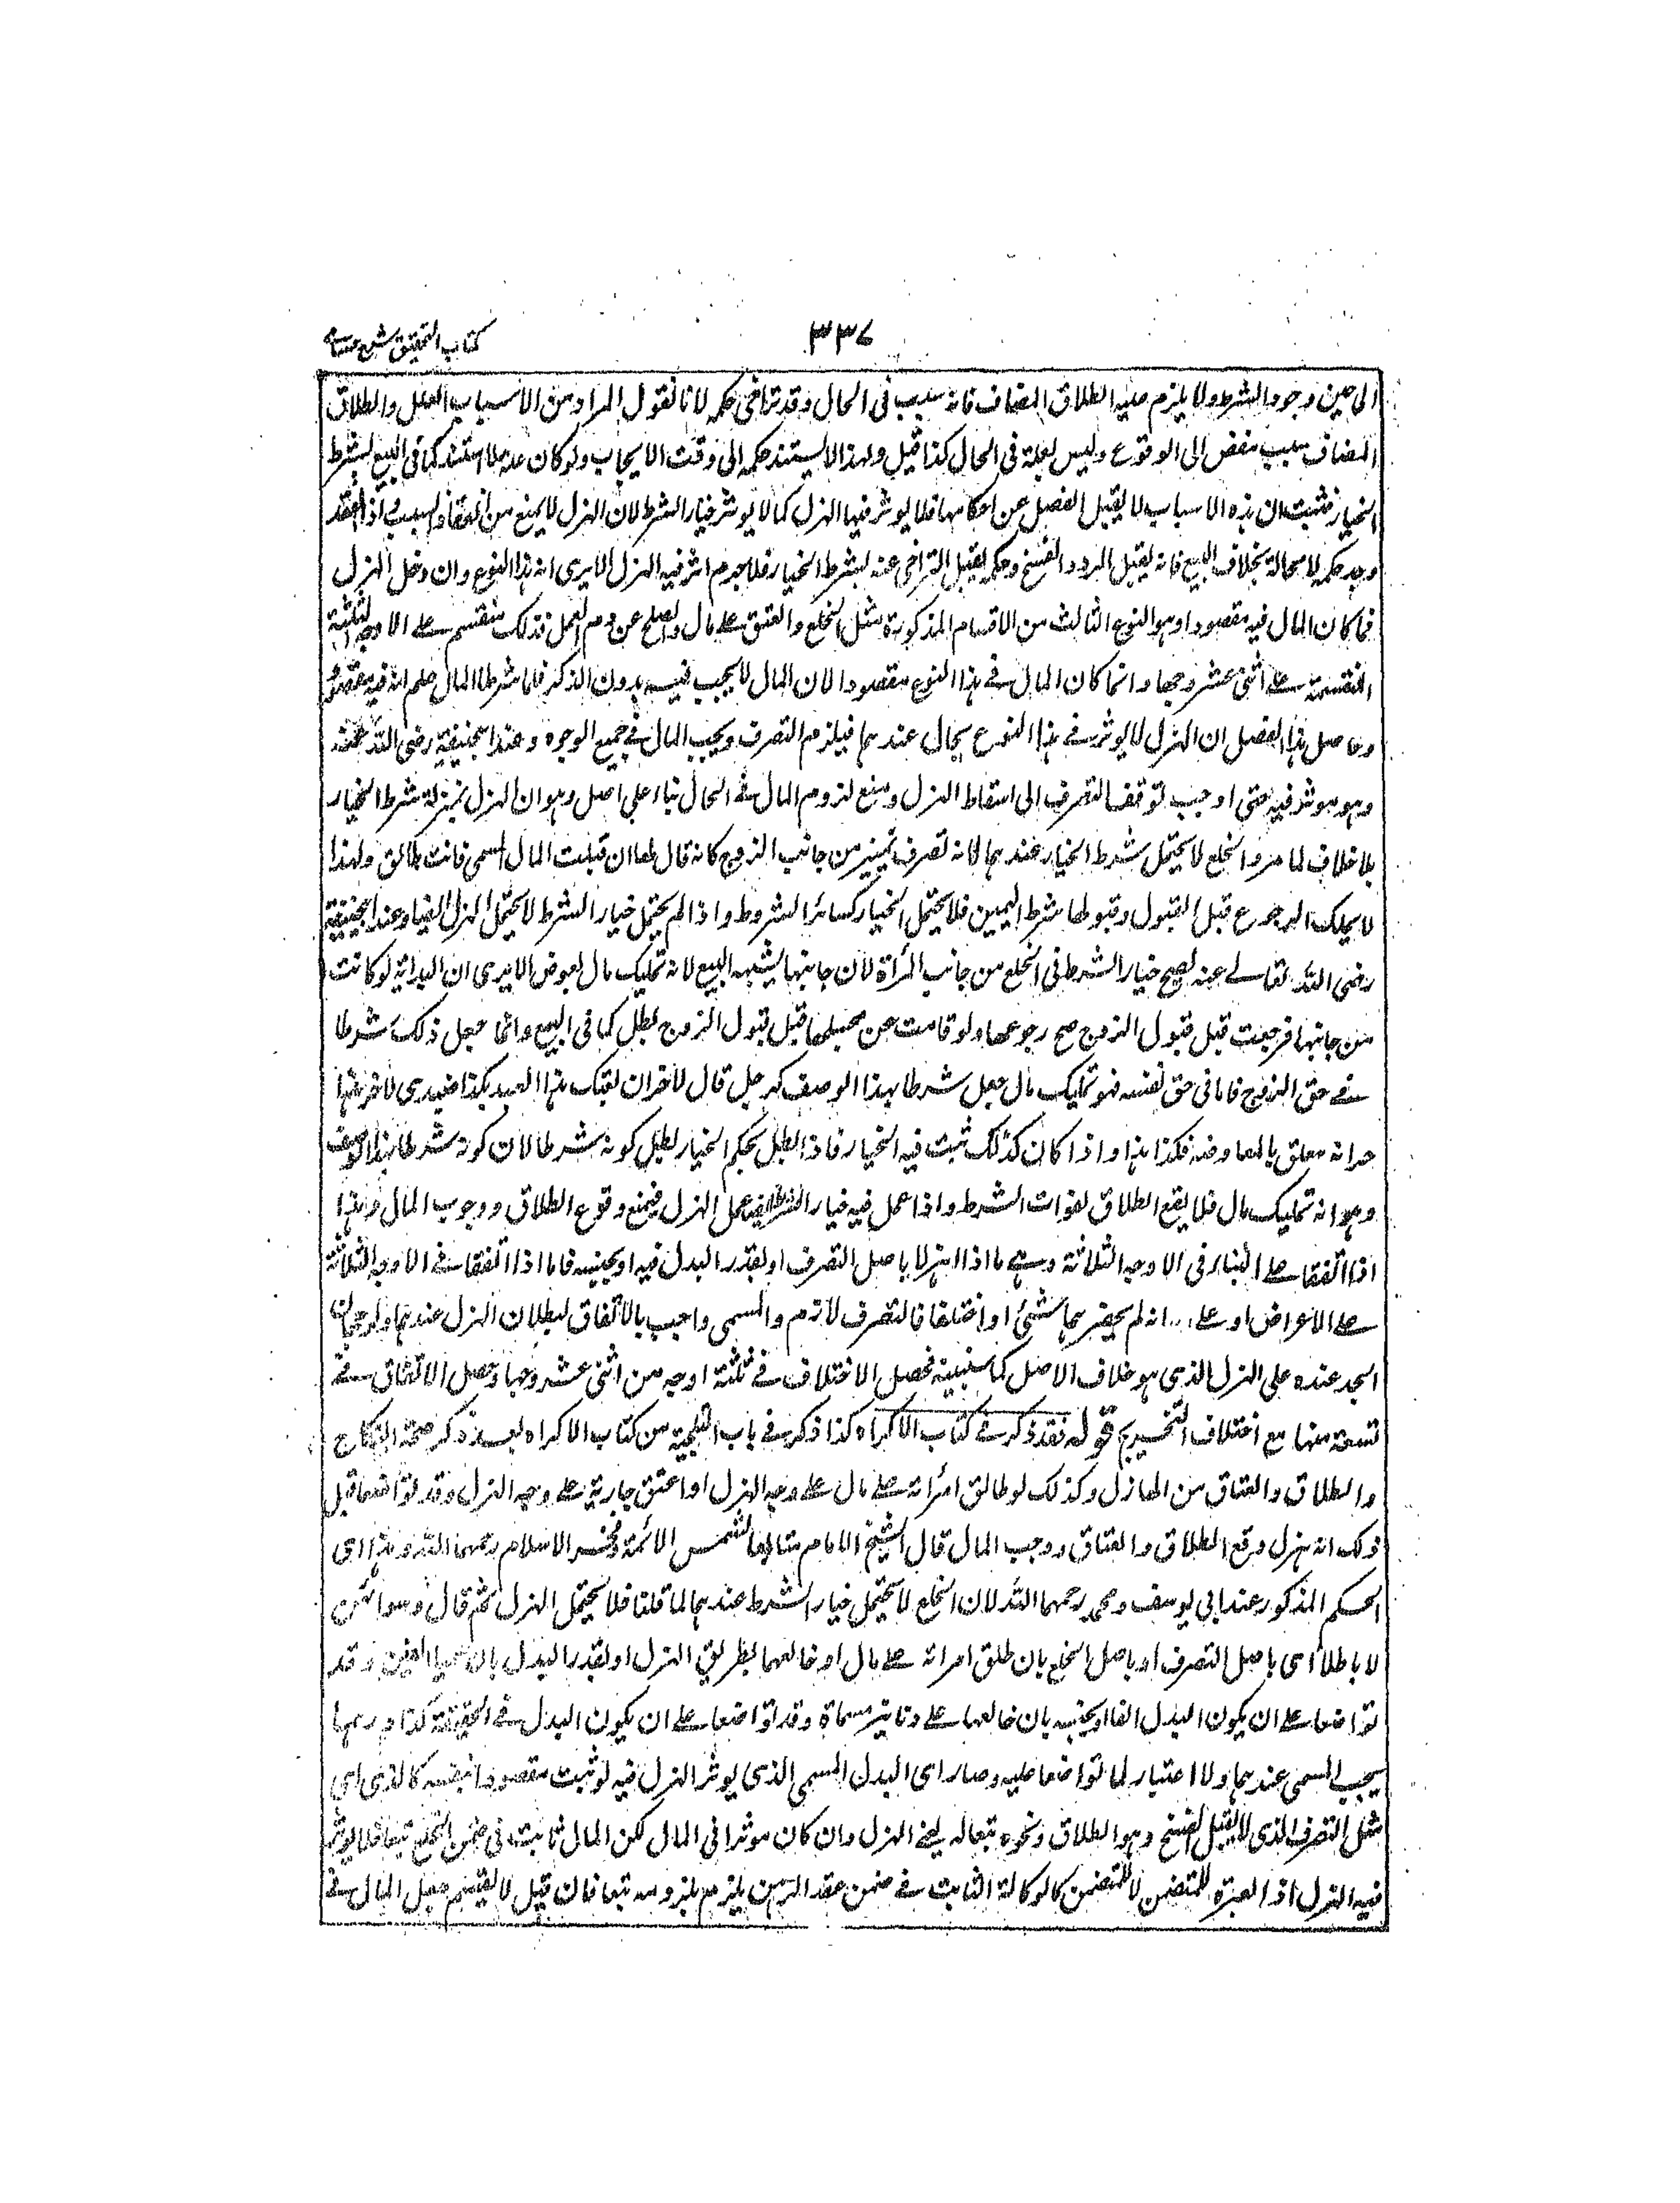 ٣٣٧
كتاب التحقيق شرح حسامى
الى حين وجود الشرط ولا يلزم عليه الطلاق المضاف فانه سبب فى الحال وقد تراخى حكمه لانا نقول المراد من الاسباب العلل والطلاق
المضاف سبب مفض الى الوقوع وليس بعلة فى الحال كذا قيل ولهذا لا يستند حكمه الى وقت الايجاب ولو كان علة لاستند كما فى البيع بشرط
الخيار فثبت ان هذه الاسباب لا يقبل الفصل عن احكامها فلا يوثر فيها الهزل كما لا يوثر خيار الشرط لان الهزل لا يمنع من انعقاد السبب واذا انعقد
وجد حكمه لا محالة بخلاف البيع فانه يقبل الرد والفسخ وحكمه يقبل التراخى عنه بشرط الخيار فلا جرم اثر فيه الهزل الا يرى انه هذا النوع وان دخل الهزل
فما كان المال فيه مقصودا وهو النوع الثالث من الاقسام المذكورة مثل الخلع والعتق على مال والصلح عن دم العمد فذلك منقسم على الاوجه الثلثة
المنقسمة على اثنى عشر وجها وانما كان المال فى هذا النوع مقصودا لان المال لا يجب فيه بدون الذكر فلما شرطا المال علم انه فيه مقصود
وحاصل هذا الفصل ان الهزل لا يوثر فى هذا النوع بحال عندهما فيلزم التصرف ويجب المال فى جميع الوجوه وعند ابيحنيفة رضى الله عنه
وهو موثر فيه حتى اوجب توقف التصرف الى اسقاط الهزل ومنع لزوم المال فى الحال بناء على اصل وهو ان الهزل بمنزلة شرط الخيار
بلا خلاف لما مر والخلع لا يحتمل شرط الخيار عندهما لانه تصرف يمين من جانب الزوج كانه قال لها ان قبلت المال المسمى فانت طالق ولهذا
لا يملك الرجوع قبل القبول وقبولها شرط اليمين فلا يحتمل الخيار كسائر الشروط واذا لم يحتمل خيار الشرط لا يحتمل الهزل ايضا وعند ابيحنيفة
رضى الله تعالى عنه يصح خيار الشرط فى الخلع من جانب المرأة لان جانبها يشبه البيع لانه تمليك مال بعوض الا يرى ان البداية لو كانت
من جانبها فرجعت قبل قبول الزوج صح رجوعها ولو قامت عن مجلسها قبل قبول الزوج بطل كما فى البيع وانما جعل ذلك شرطا
فى حق الزوج فاما فى حق نفسه فهو تمليك مال جعل شرطا بهذا الوصف كرجل قال لاخر ان بعتك هذا العبد بكذا فعبدى الاخر هذا
حر انه معلق بالمعاوضة فكذا هذا واذا كان كذلك ثبت فيه الخيار فاذا بطل بحكم الخيار بطل كونه شرطا لان كونه شرطا بهذا الوصف
وهو انه تمليك مال فلا يقع الطلاق لفوات الشرط واذا عمل فيه خيار الشرط يعمل الهزل فيمنع وقوع الطلاق ووجوب المال وهذا
اذا اتفقا على البناء فى الاوجه الثلاثة وهى ما اذا هزلا باصل التصرف او بقدر البدل فيه او بجنسه فاما اذا اتفقا فى الاوجه الثلاثة
على الاعراض او على انه لم يحضرهما شئ او اختلفا فالتصرف لازم والمسمى واجب بالاتفاق لبطلان الهزل عندهما ولرجحان
الجد عنده على الهزل الذى هو خلاف الاصل كما سنبينه فحصل الاختلاف فى ثلثة اوجه من اثنى عشر وجها وحصل الاتفاق فى
تسعة منها مع اختلاف التخريج قوله فقد ذكر فى كتاب الاكراه كذا ذكر فى باب التلجية من كتاب الاكراه بعد ذكر صحة النكاح
والطلاق والعتاق من الهازل وكذلك لو طلق امرأته على مال على وجه الهزل او اعتق جارية على وجه الهزل وقد تواضعا قبل
ذلك انه هزل وقع الطلاق والعتاق ووجب المال قال الشيخ الامام متابعا لشمس الائمة وفخر الاسلام رحمهما الله وهذا اى
الحكم المذكور عند ابى يوسف ومحمد رحمهما الله لان الخلع لا يحتمل خيار الشرط عندهما لما قلنا فلا يحتمل الهزل ثم قال وسواء هزلا
لا باطلا اى باصل التصرف او باصل الخلع بان طلق امراته على مال او خالعها بطريق الهزل او بقدر البدل بان سميا الفين وقد
تواضعا على ان يكون البدل الفا او بجنسه بان خالعها على دنانير مسماة وقد تواضعا على ان يكون البدل فى الحقيقة كذا درهما
يجب المسمى عندهما ولا اعتبار لما تواضعا عليه وصار اى البدل المسمى الذى يوثر الهزل فيه لو ثبت مقصودا بنفسه كالذى اى
مثل التصرف الذى لا يقبل الفسخ وهو الطلاق ونحوه تبعا له يعنى الهزل وان كان موثرا فى المال لكن المال ثابت فى ضمن الخلع تبعا فلا يوثر
فيه الهزل اذ العبرة للمتضمن لا للمتضمن كالوكالة الثابت فى ضمن عقد الرهن يلزم بلزومه تبعا فان قيل لا يستقيم جعل المال فى